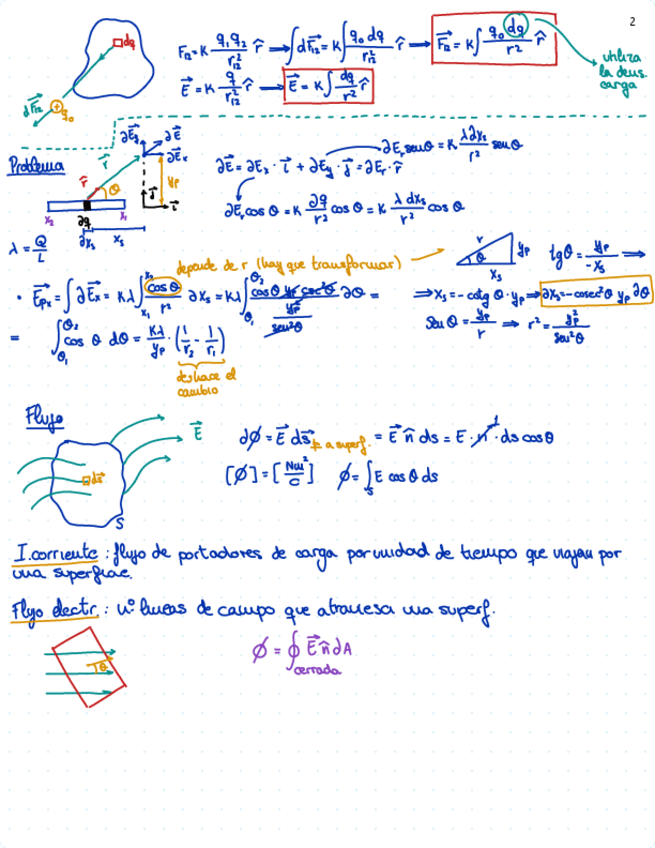 2
F₁₂ = K q₁q₂/r₁₂² r̂ → ∫dF⃗₁₂ = K∫ q₀ dq/r₁₂² r̂ → F⃗₁₂ = K∫ q₀ dq/r² r̂
dq
E⃗ = K q/r₁₂² r̂ → E⃗ = K∫ dq/r² r̂
utiliza
la dens.
carga
dF⃗₁₂
q₀
Problema
∂E⃗y ∂E⃗
∂E⃗x
r⃗
r̂
θ
yp
j⃗
i⃗
x₂ ∂q x₁
∂xs xs
λ = Q/L
∂E⃗ = ∂Ex · i⃗ + ∂Ey · j⃗ = ∂Er · r̂
∂Er senθ = K λ∂xs/r² senθ
∂Er cosθ = K ∂q/r² cosθ = K λ dxs/r² cosθ
depende de r (hay que transformar)
r
θ
yp
xs
tgθ = yp/-xs ⇒
· E⃗px = ∫∂E⃗x = Kλ∫ˣ²ₓ₁ cosθ/r² ∂xs = Kλ∫θ₂θ₁ cosθ yp cosec²θ/(yp²/sen²θ) ∂θ =
⇒ xs = -cotgθ · yp ⇒ ∂xs = -cosec²θ yp ∂θ
senθ = yp/r ⇒ r² = yp²/sen²θ
= ∫θ₂θ₁ cosθ dθ = Kλ/yp · (1/r₂ - 1/r₁)
deshace el
cambio
Flujo
E⃗
ds⃗
S
dφ = E⃗ ds⃗ ⊥ a superf. = E⃗ n̂ ds = E · n · ds cosθ
1
[φ] = [Nm²/C] φ = ∫s E cosθ ds
I.corriente : flujo de portadores de carga por unidad de tiempo que viajan por
una superficie.
Flujo electr. : nº líneas de campo que atraviesa una superf.
θ
φ = ∮ E⃗ n̂ ∂A
cerrada